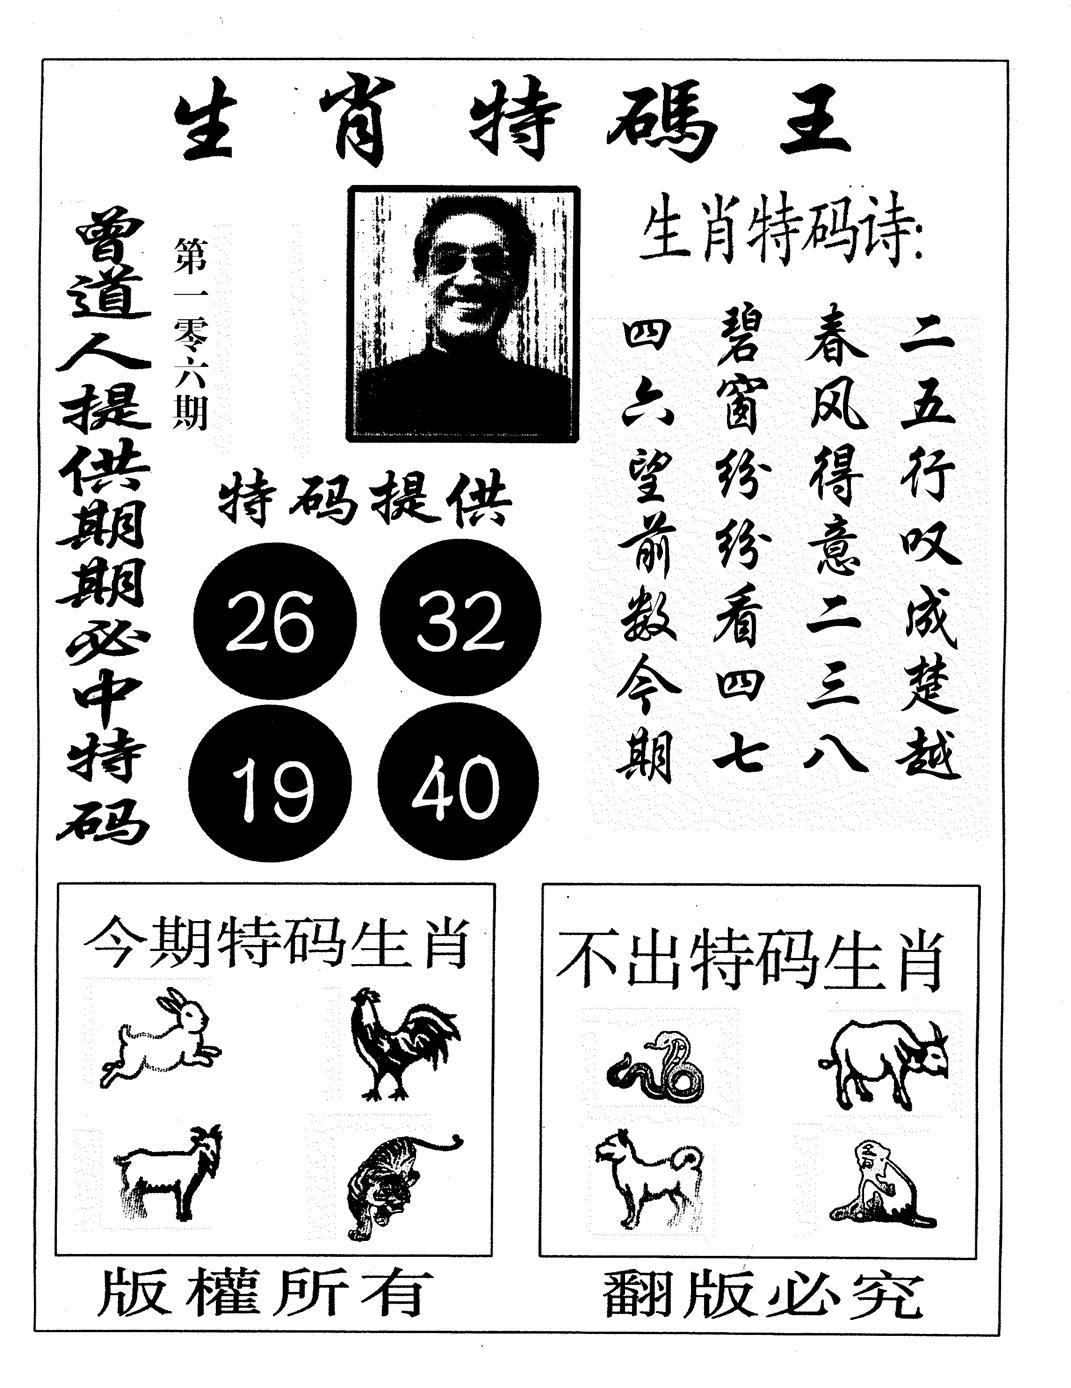 生肖特碼王
曾道人提供期期必中特码
第一零六期
生肖特码诗:
二五行叹成楚越
春风得意二三八
碧窗纷纷看四七
四六望前数今期
特码提供
26 32
19 40
今期特码生肖
不出特码生肖
版權所有
翻版必究